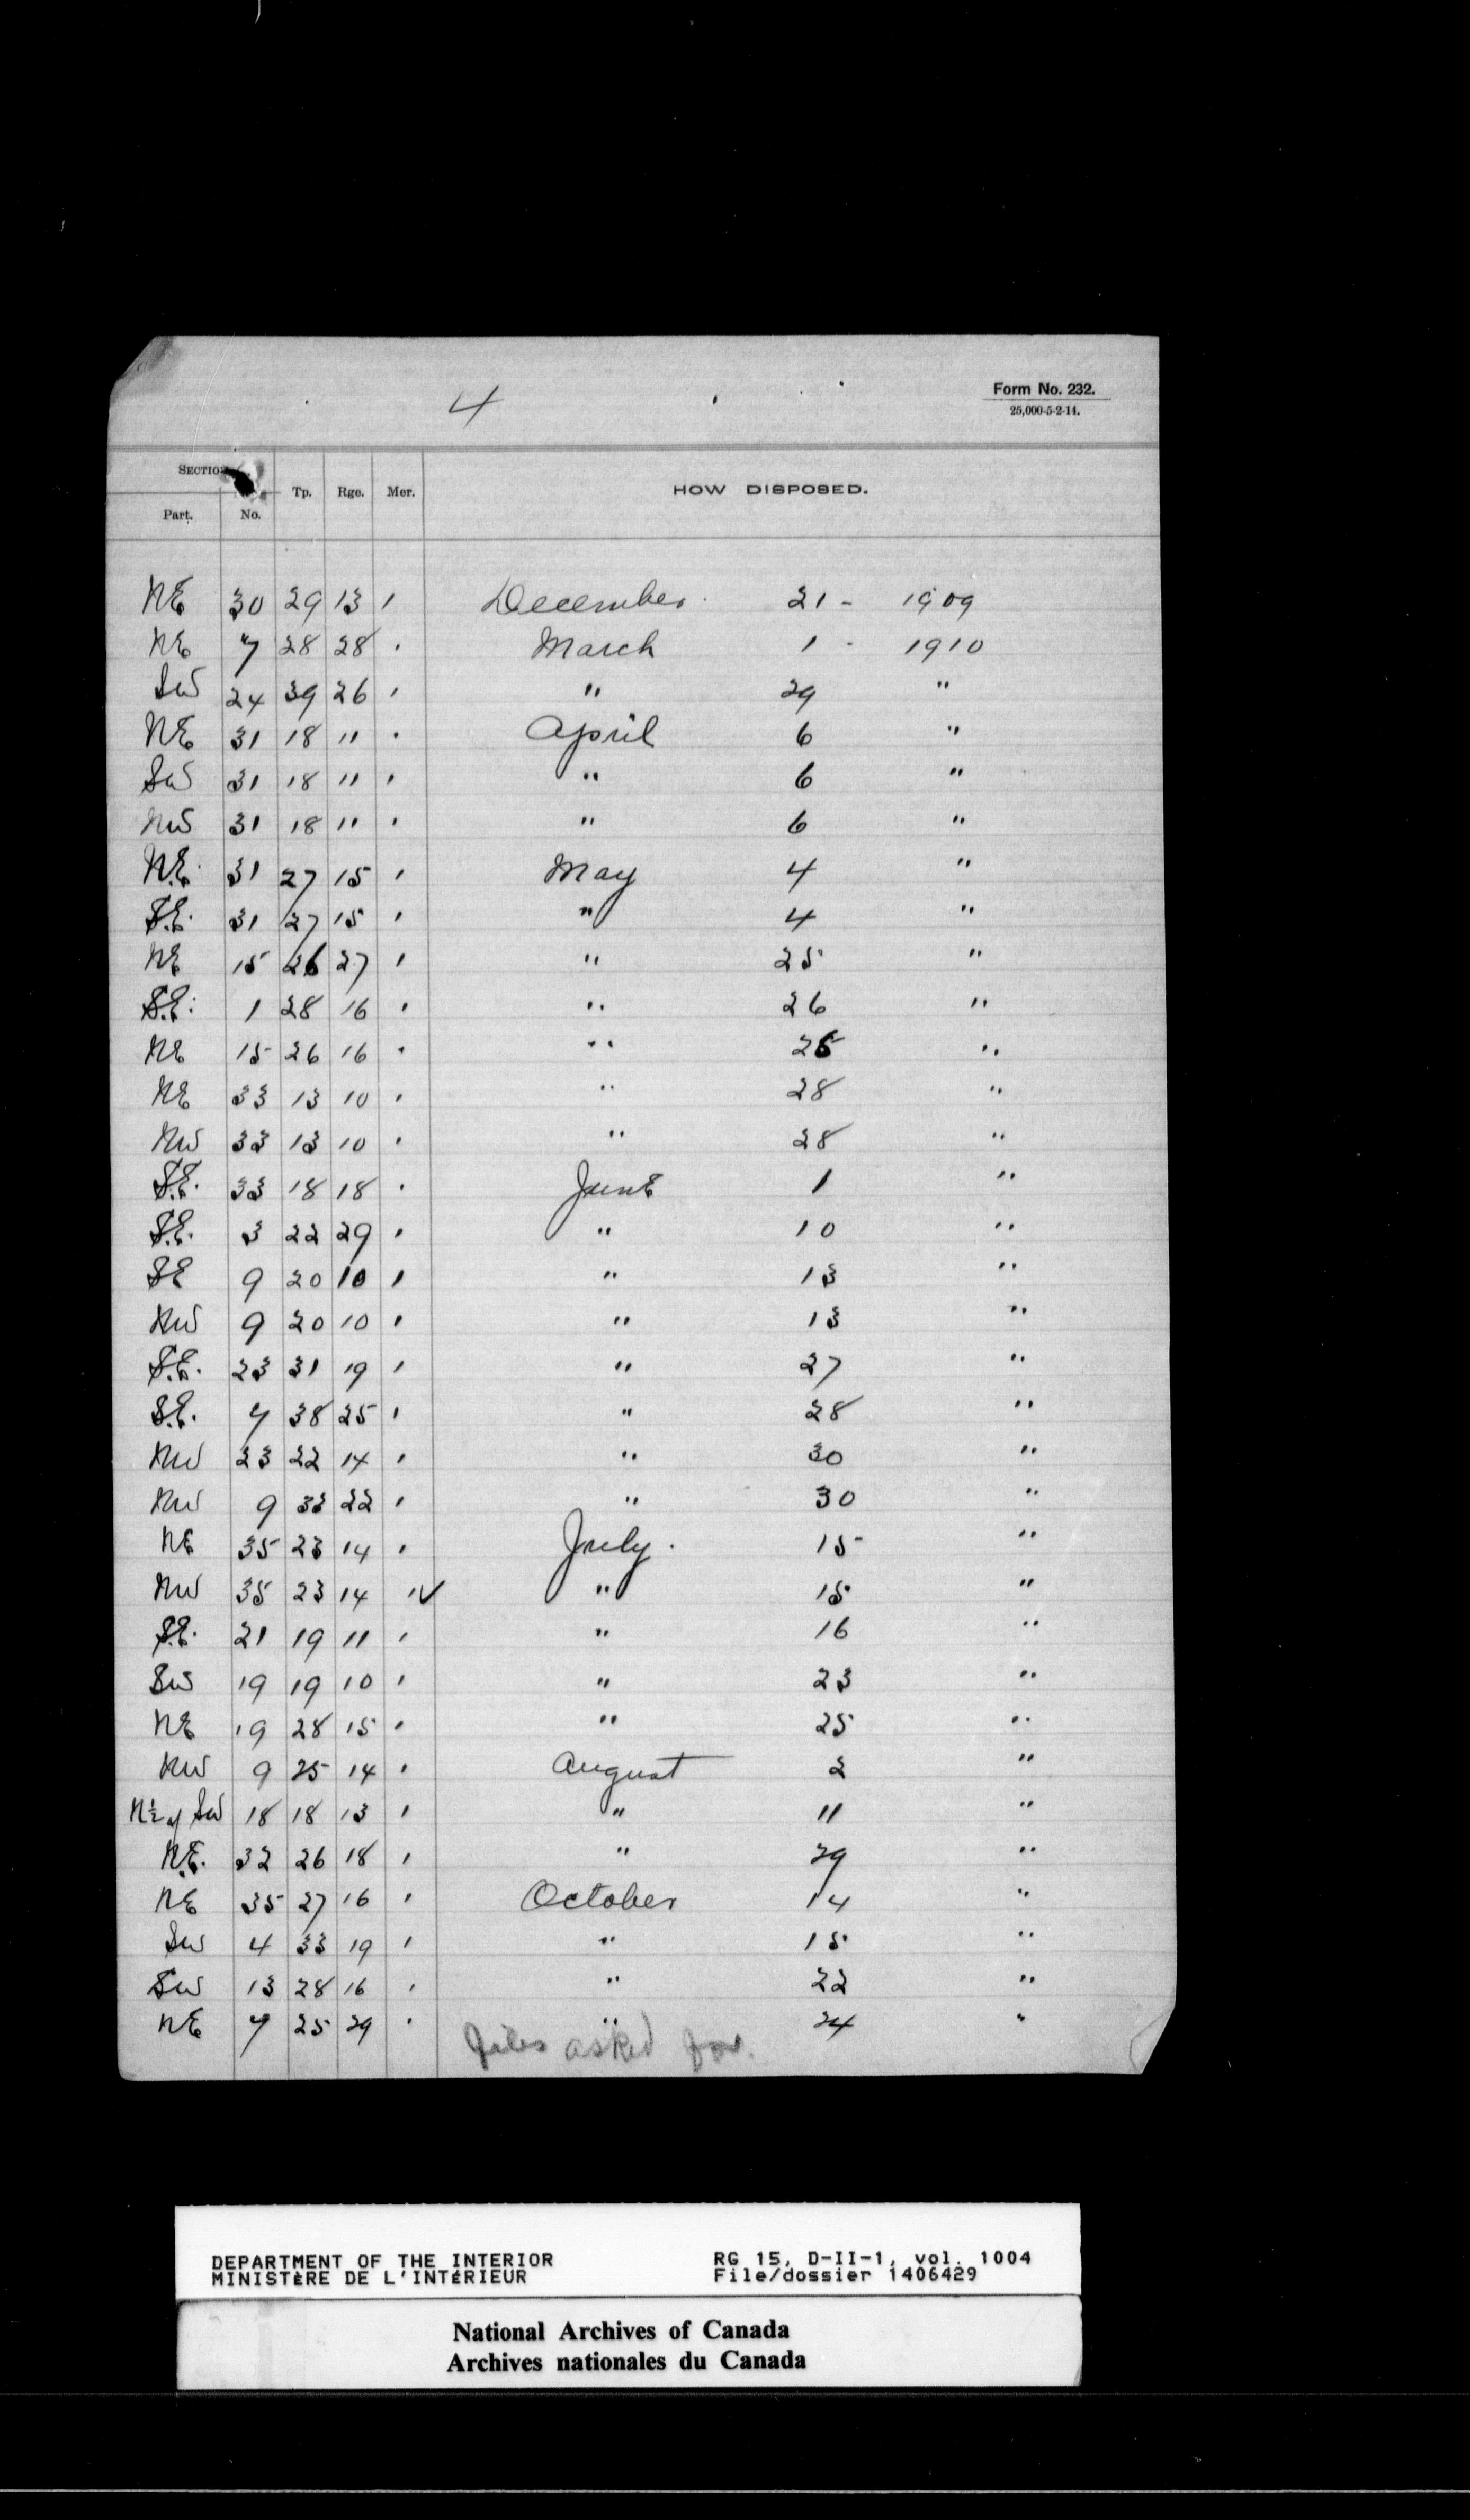 4
Form No. 232.
25,000-5-2-14.
SECTIO
Part. No. Tp. Rge. Mer. HOW DISPOSED.
NE 30 29 13 1 December 21 - 1909
NE 7 28 28 " March 1 - 1910
SW 24 39 26 " " 29 "
NE 31 18 11 " April 6 "
SW 31 18 11 " " 6 "
NW 31 18 11 " " 6 "
N.E. 31 27 15 " May 4 "
S.E. 31 27 15 " " 4 "
NE 15 26 27 " " 25 "
S.E. 1 28 16 " " 26 "
NE 15 26 16 " " "
NE 33 13 10 " " 28 "
NW 33 13 10 " " 28 "
S.E. 33 18 18 " June 1 "
S.E. 3 22 29 " " 10 "
SE 9 20 10 " " 13 "
NW 9 20 10 " " 13 "
S.E. 23 31 19 " " 27 "
S.E. 7 38 25 " " 28 "
NW 23 22 14 " " 30 "
NW 9 33 22 " " 30 "
NE 35 23 14 " July. 15 "
NW 35 23 14 " ✓ " 15 "
S.E. 21 19 11 " " 16 "
SW 19 19 10 " " 23 "
NE 19 28 15 " " 25 "
NW 9 25 14 " August 2 "
N½ of SW 18 18 13 " " 11 "
N.E. 32 26 18 " " 29 "
NE 35 27 16 " October 14 "
SW 4 33 19 " " 15 "
SW 13 28 16 " " 22 "
NE 7 25 29 " " 24 "
files asked for.
DEPARTMENT OF THE INTERIOR RG 15, D-II-1, vol. 1004
MINISTÈRE DE L'INTÉRIEUR File/dossier 1406429
National Archives of Canada
Archives nationales du Canada